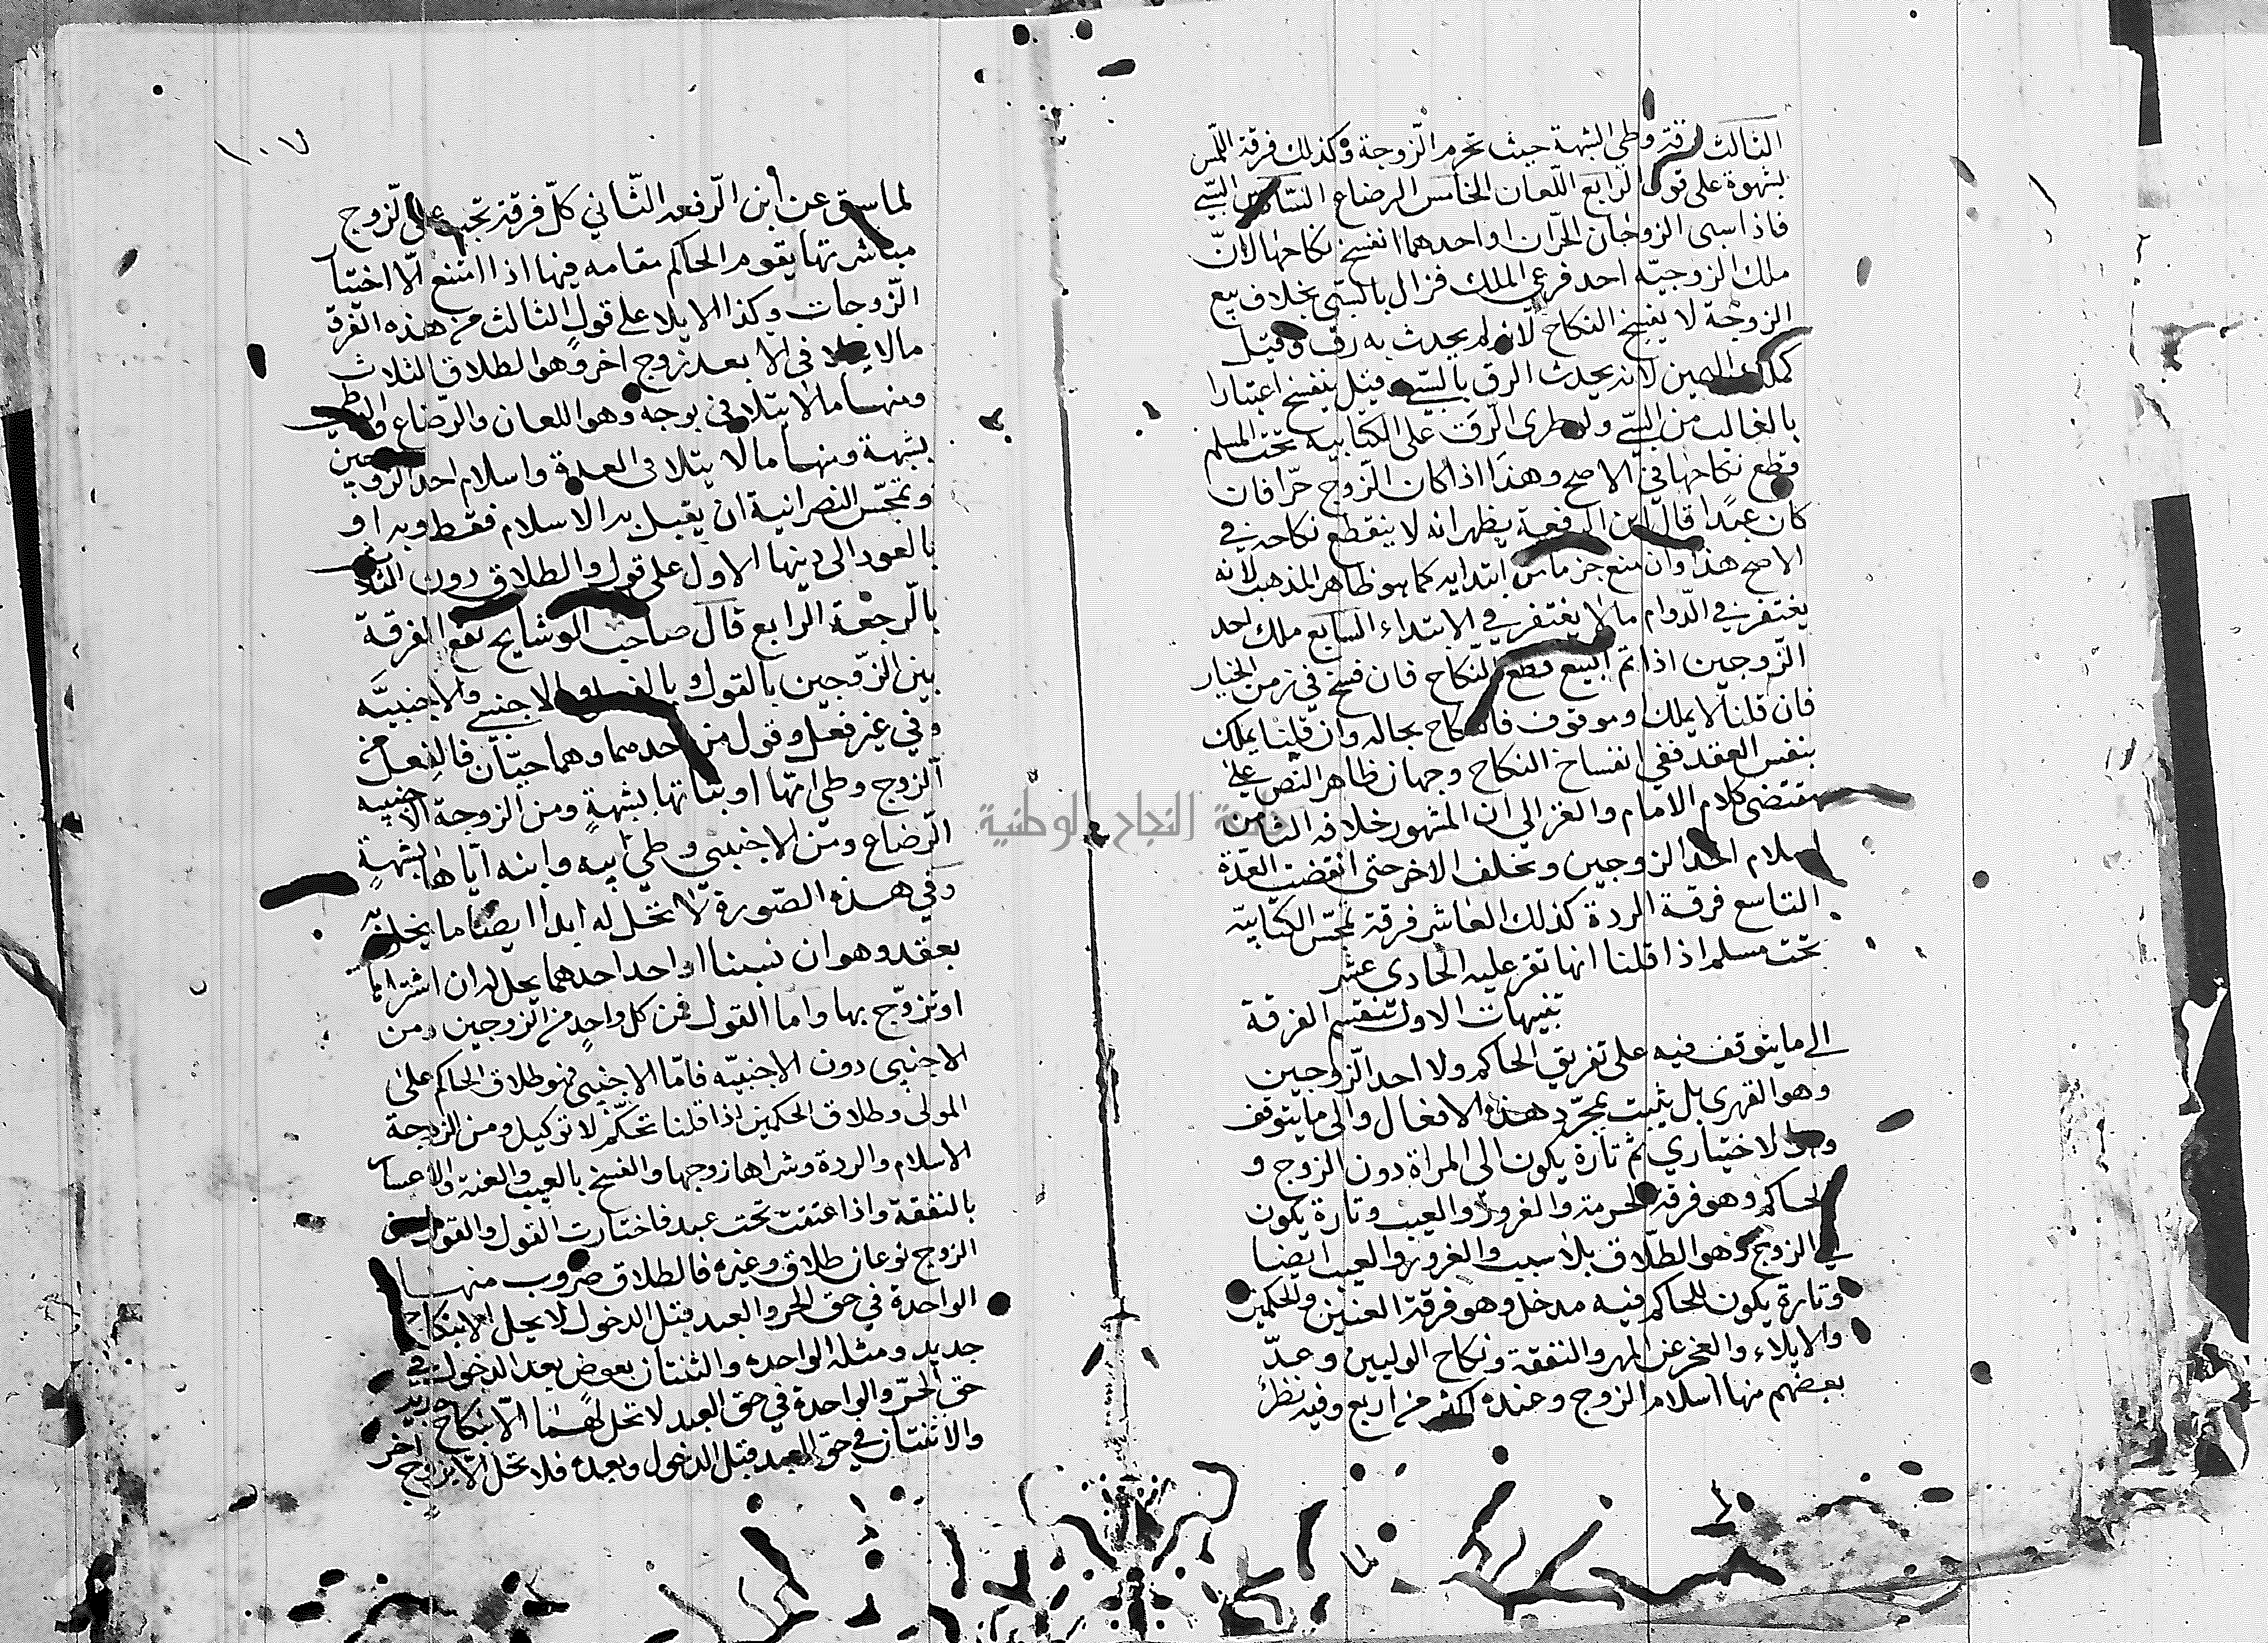 الثالث فرقة وطى الشبهة حيث تحرم الزوجة وكذلك فرقة اللمس
بشهوة على قول الرابع اللعان الخامس الرضاع السادس السبى
فاذا سبى الزوجان الحران او احدهما انفسخ نكاحهما لان
ملك الزوجيه احد فرعى الملك فزال بالسبى بخلاف بيع
الزوجة لا يفسخ النكاح لانه لم يحدث به رق وقيل
كملك اليمين لانه يحدث الرق بالسبى وقيل ينفسخ اعتبارا
بالغالب من السبى ولو طرى الرق على الكتابية تحت المسلم
قطع نكاحها فى الاصح وهذا اذا كان الزوج حرا فان
كان عبدا قال ابن الرفعة يظهر انه لا ينقطع نكاحه فى
الاصح هذا وان منع جزما من ابتدايه كما هو ظاهر المذهب لانه
يغتفر فى الدوام ما لا يغتفر فى الابتداء السابع ملك احد
الزوجين اذا تم البيع قطع النكاح فان فسخ فى زمن الخيار
فان قلنا لا يملك وموقوف فالنكاح بحاله وان قلنا يملك
بنفس العقد ففى انفساخ النكاح وجهان ظاهر النص على
مقتضى كلام الامام والغزالى ان المشهور خلافه الثامن
اسلام احد الزوجين وتخلف الاخر حتى انقضت العدة
التاسع فرقة الردة كذلك العاشر فرقة تمجس الكتابيه
تحت مسلم اذا قلنا انها تقر عليه الحادى عشر
تنبيهات الاول تنقسم الفرقة
الى ما يتوقف فيه على تفريق الحاكم ولا احد الزوجين
وهو القهرى بل يثبت بمجرد هذه الافعال والى ما يتوقف
وهو الاختيارى ثم تارة يكون الى المراة دون الزوج و
الحاكم وهو فرقة الحرمة والغرور والعيب وتارة يكون
الى الزوج وهو الطلاق بلا سبب والغرور والعيب ايضا
وتارة يكون للحاكم فيه مدخل وهو فرقة العنين والحكمين
والايلاء والعجز عن المهر والنفقة ونكاح الوليين وعد
بعضهم منها اسلام الزوج وعنده اكثر من اربع وفيه نظر
لما
١٠٧
لما سبق عن ابن الرفعه الثانى كل فرقة تجب على الزوج
مباشرتها يقوم الحاكم مقامه فيها اذا امتنع الا اختيار
الزوجات وكذا الايلا على قول الثالث من هذه الفرق
ما لا يتلافى الا بعد زوج اخر وهو الطلاق الثلاث
ومنها ما لا يتلافى بوجه وهو اللعان والرضاع والوطى
بشبهة ومنها ما لا يتلافى العدة واسلام احد الزوجين
وتمجس النصرانية ان يقبل به الاسلام فقط وبه او
بالعود الى دينها الاول على قول والطلاق دون الثلاث
بالرجعة الرابع قال صاحب الوشايح تقع الفرقة
بين الزوجين بالقول وبالفعل والاجنبى والاجنبيه
وفى غير فعل وقول من احدهما وهما حيان فالفعل من
الزوج وطى امها او بناتها بشبهة ومن الزوجة الاجنبيه
الرضاع ومن الاجنبى وطى ابيه وابنه اياها بشبهة
وفى هذه الصورة لا تحل له ابدا ايضا ما يحله
بعقد وهو ان احدهما يحل له ان اشتراها
او تزوج بها واما القول فمن كل واحد من الزوجين ومن
الاجنبى دون الاجنبيه فاما الاجنبى فهو طلاق الحاكم على
المولى وطلاق الحكمين اذا قلنا تحكم لا توكيل ومن الزوجة
الاسلام والردة وشراها زوجها والفسخ بالعيب والعنة والاعسار
بالنفقة واذا عتقت تحت عبد فاختارت القول والقول من
الزوج نوعان طلاق وغيره فالطلاق ضروب منها
الواحدة فى حق الحر والعبد قبل الدخول لا يحل الا بنكاح
جديد ومثله الواحدة والثنتان بعوض بعد الدخول فى
حق الحر والواحدة فى حق العبد لا تحل لهما الا بنكاح جديد
والاثنتان فى حق العبد قبل الدخول وبعده فلا تحل الا بزوج اخر
جامعة النجاح الوطنية